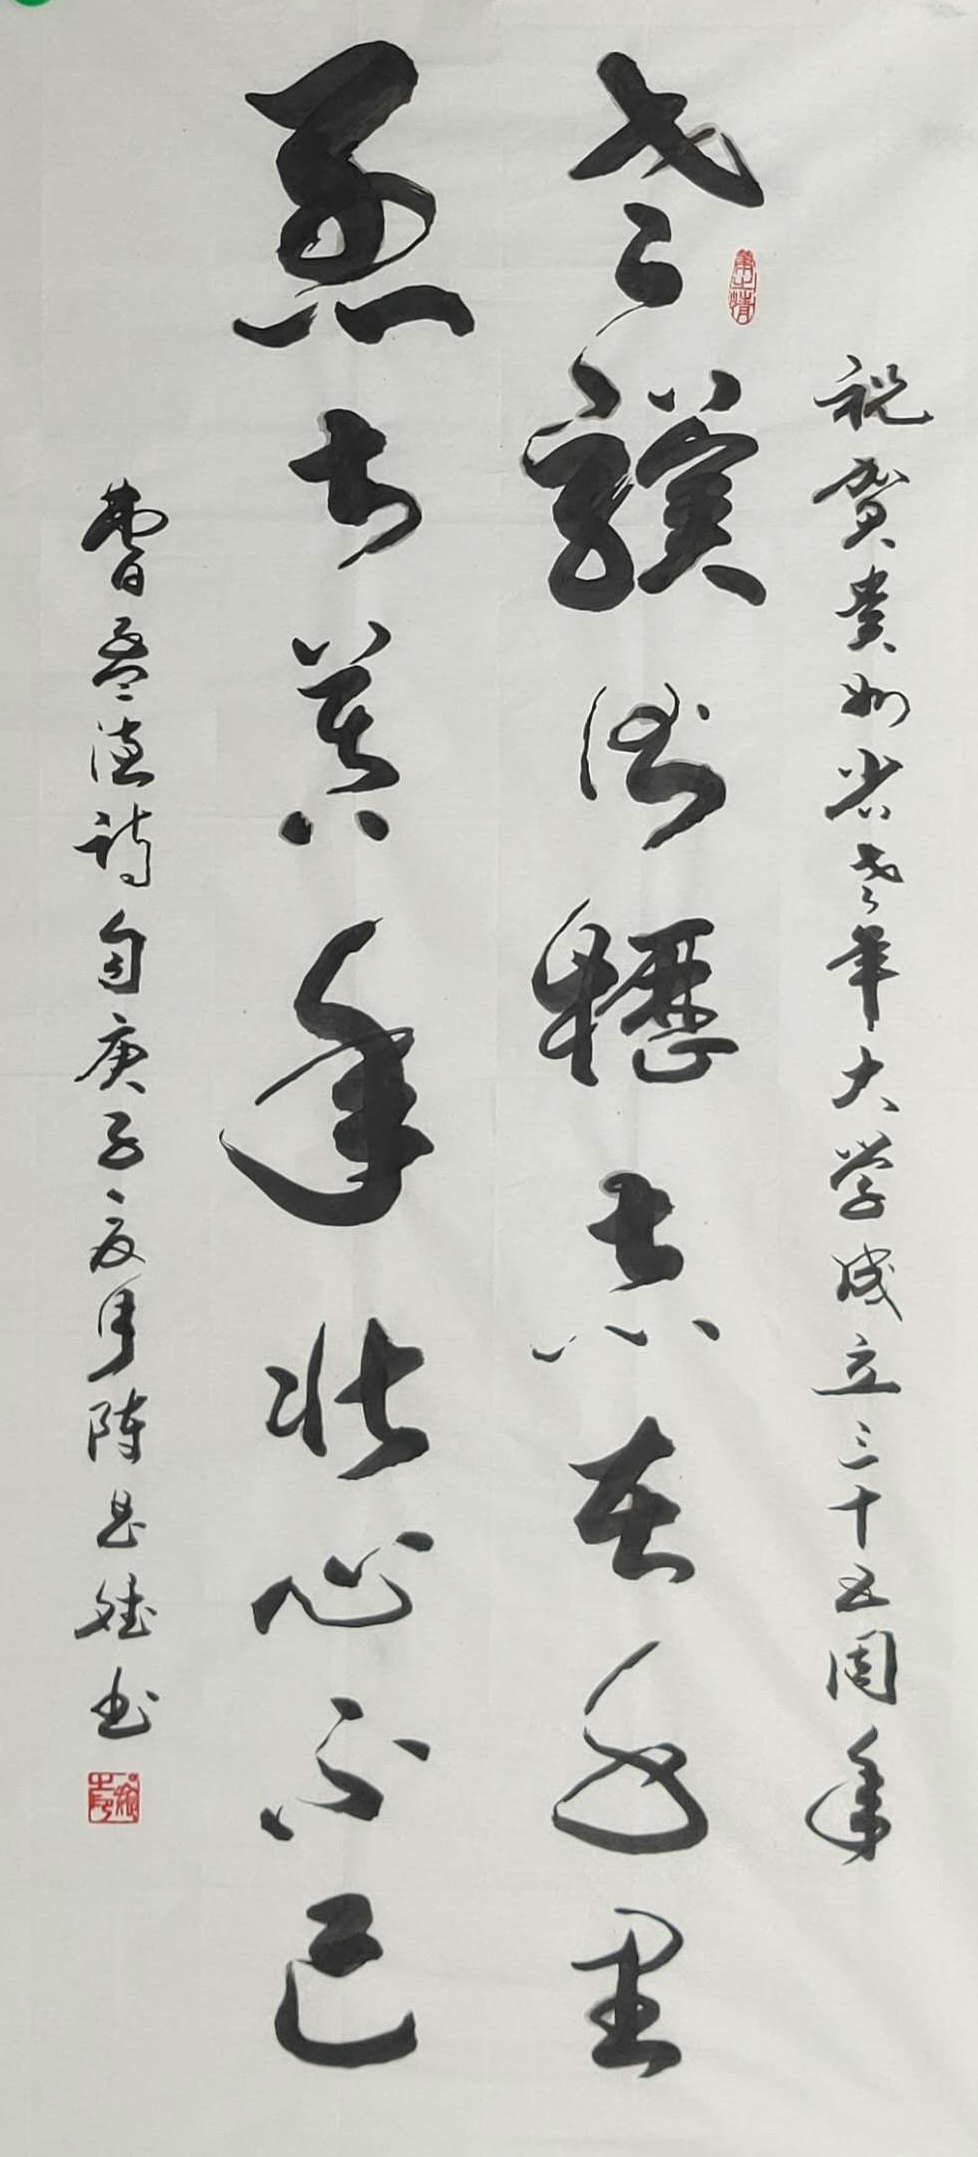 祝贺贵州省老年大学成立三十五周年
老驥伏櫪志在千里
烈士暮年壮心不已
曹孟德詩句庚子夏月陈书